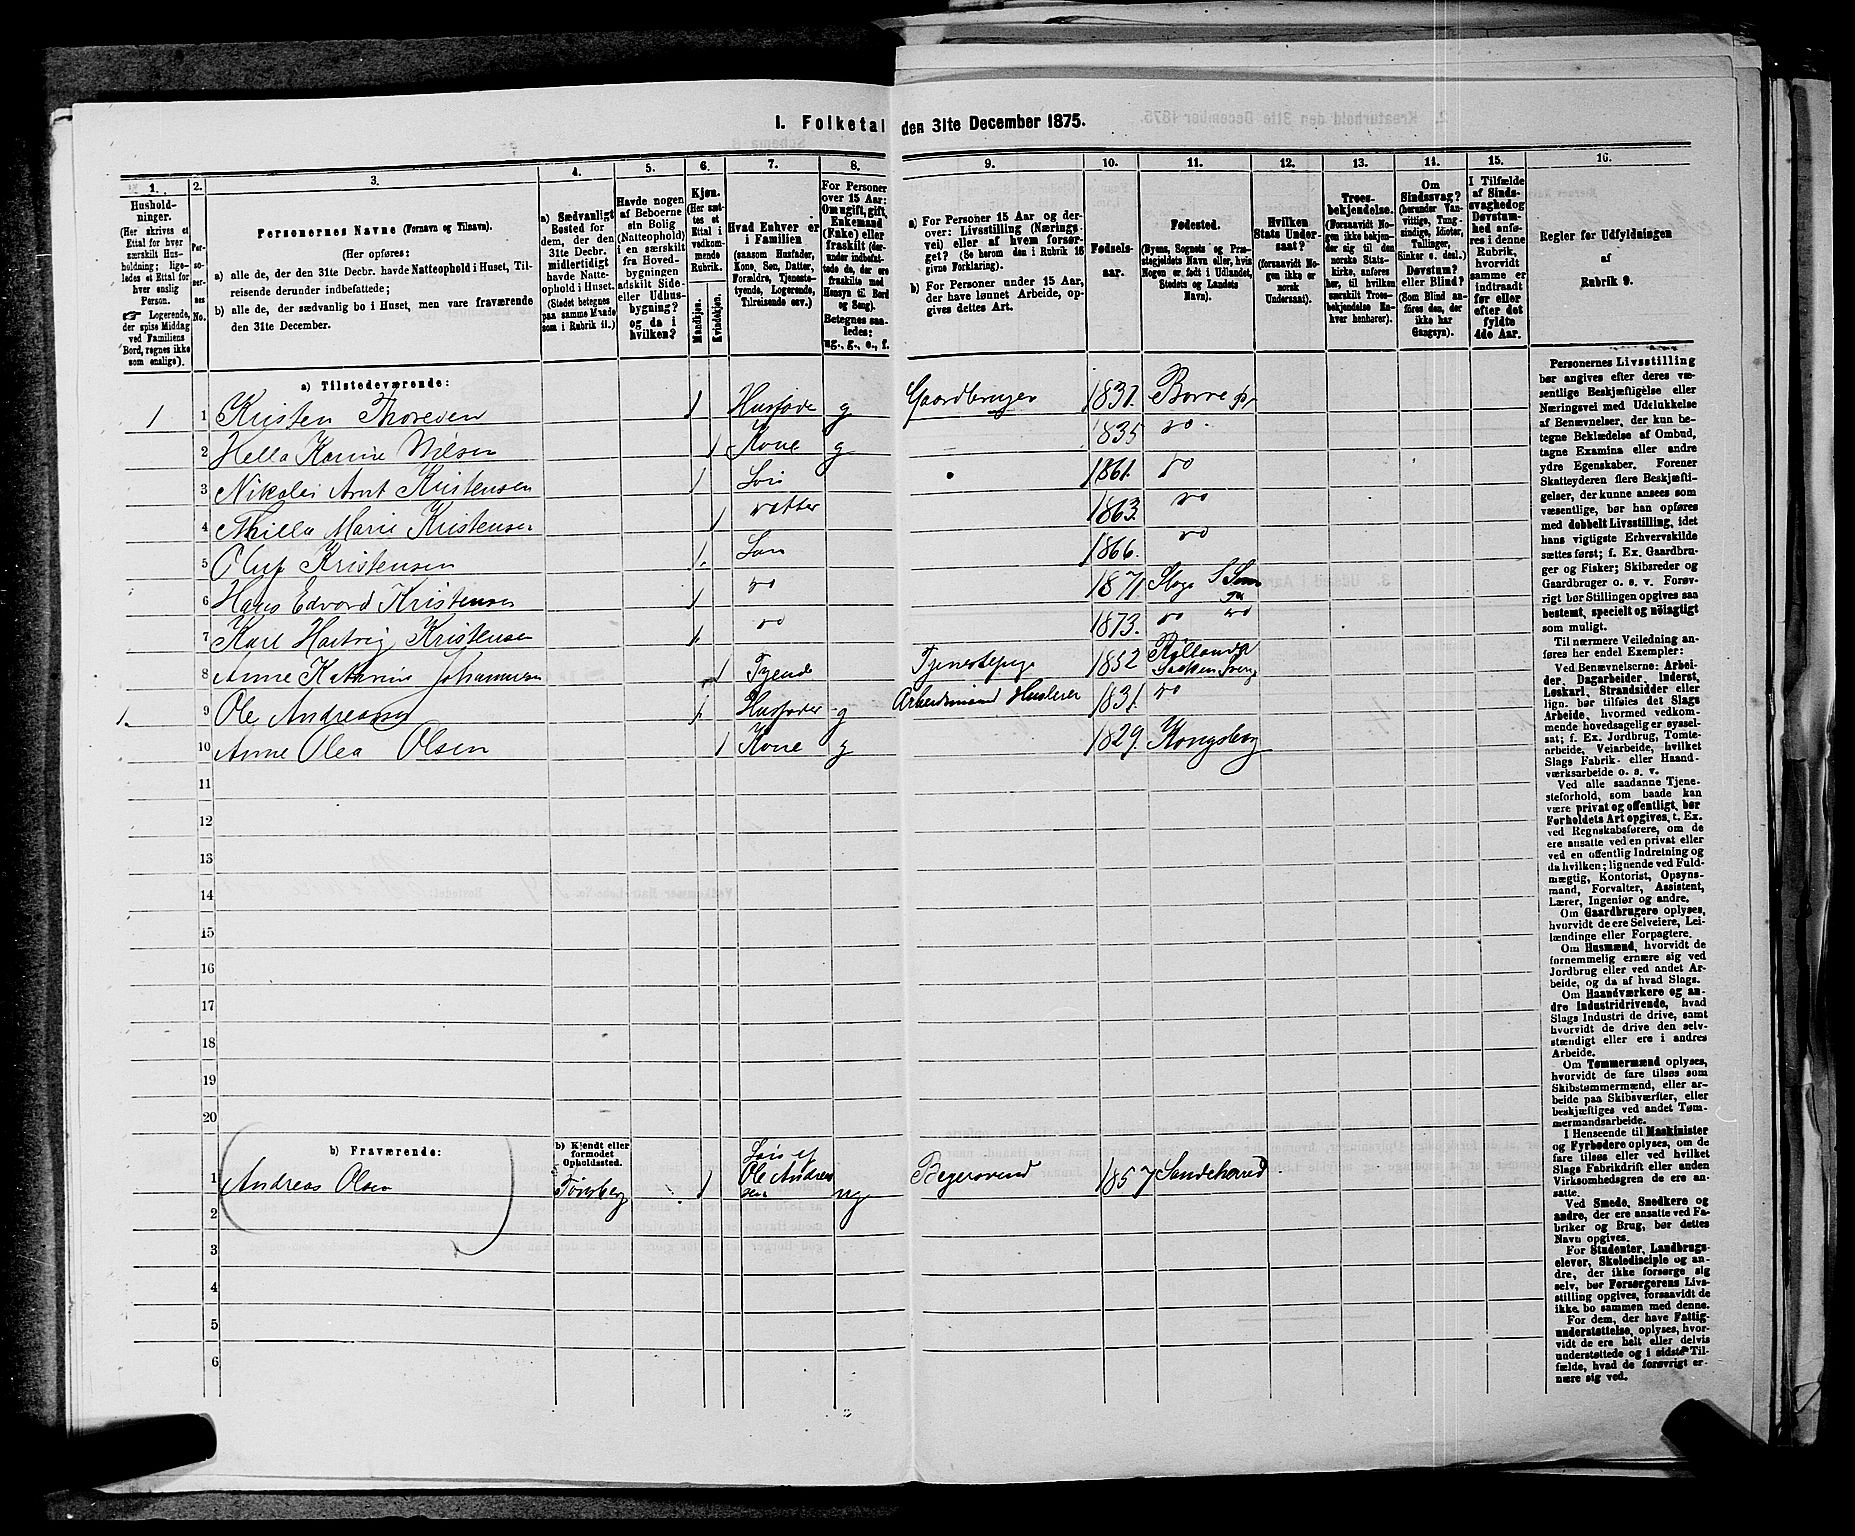 I. Folketal den 31te December 1875.
1. 2. 3. 4. 5. 6. 7. 8. 9. 10. 11. 12. 13. 14. 15. 16.
Husholdninger.
(Her skrives et
Ettal for hver
særskilt Hus-
holdning; lige-
ledes et Ettal for
hver enslig
Person.
☞ Logerende,
der spise Middag
ved Familiens
Bord, regnes ikke
som enslige).
Per-
so-
ner-
nes
No.
Personernes Navne (Fornavn og Tilnavn).
(Her opføres:
a) alle de, der den 31te Decbr. havde Natteophold i Huset, Til-
reisende derunder indbefattede;
b) alle de, der sædvanlig bo i Huset, men vare fraværende
den 31te December.
a) Sædvanligt
Bosted for
dem, der den
31te Decbr.
midlertidigt
havde Natte-
ophold i Huset.
(Stedet betegnes
paa samme Maade
som i Rubrik 11.)
Havde nogen
af Beboerne
sin Bolig
(Natteophold)
i en særskilt
fra Hoved-
bygningen
adskilt Side-
eller Udhus-
bygning?
og da i
hvilken?
Kjøn.
(Her sæt-
tes et
Ettal i
vedkom-
mende
Rubrik.
Mandkjøn.
Kvindekjøn.
Hvad Enhver er
i Familien
(saasom Husfader,
Kone, Søn, Datter,
Forældre, Tjeneste-
tyende, Logerende,
Tilreisende osv.)
For Personer
over 15 Aar:
Om ugift, gift,
Enkemand
(Enke) eller
fraskilt (der-
under indbefat-
tede de, der ere
fraskilte med
Hensyn til Bord
og Seng).
Betegnes saa-
ledes:
ug., g., e., f.
a) For Personer 15 Aar og der-
over: Livsstilling (Nærings-
vei) eller af hvem forsør-
get? (Se herom den i Rubrik 16
givne Forklaring).
b) For Personer under 15 Aar,
der have lønnet Arbeide, op-
gives dettes Art.
Fødsels-
aar.
Fødested.
(Byens, Sognets og Præ-
stegjeldets Navn eller, hvis
Nogen er født i Udlandet,
Stedets og Landets
Navn).
Hvilken
Stats Under-
saat?
(forsaavidt No-
gen ikke er
norsk
Undersaat).
Troes-
bekjendelse.
(Forsaavidt No-
gen ikke bekjen-
der sig til den
norske Stats-
kirke, anføres
her, til hvilken
særskilt Troes-
bekjendelse En-
hver henhører).
Om
Sindssvag?
(herunder Van-
vittige, Tung-
sindige, Idioter,
Tullinger,
Sinker o. desl.)
Døvstum?
eller Blind?
(Som Blind an-
føres den, der
ikke har
Gangsyn).
I Tilfælde
af Sinds-
svaghed og
Døvstum-
hed anfø-
res i denne
Rubrik,
hvorvidt
samme er
indtraadt
før eller
efter det
fyldte
4de Aar.
Regler for Udfyldningen
af
Rubrik 9.
a) Tilstedeværende:
1 1 Kristen Thoresen 1 Husfade g Gaardbruger 1831. Borre Pr
2 Hella Karine Nilsen 1 Kone g 1835 do.
3 Nikolai Arnt Kristensen 1 Søn 1861. do
4 Thilla Marie Kristensen 1 datter 1863. do
5 Oluf Kristensen 1. Søn 1866. do
6 Hans Edvard Kristensen 1 do 1871
7 Karl Hartvig Kristensen 1. do 1873. do do
8 Anne Kathrine Johannesen 1 Tyende Tjenestepige 1852
1. 9 Ole Andreasen 1. Husfader g Arbeidsmand Huslerer 1831. do
10 Anne Olea Olsen 1 Kone g 1829. Kongsberg
11
12
13
14
15
16
17
18
19
20
b) Fraværende:
b) Kjendt eller
formodet
Opholdssted.
1 Andreas Olsen Tønsberg 1 Søn af Ole Andreassen ug Bagersvend 1857 Sandeherred
2
3
4
5
6
Personernes Livsstilling
bør angives efter deres væ-
sentlige Beskjæftigelse eller
Næringsvei med Udelukkelse
af Benævnelser, der kun be-
tegne Beklædelse af Ombud,
tagne Examina eller andre
ydre Egenskaber. Forener
Skatteyderen flere Beskjæfti-
gelser, der kunne ansees som
væsentlige, bør han opføres
med dobbelt Livsstilling, idet
hans vigtigste Erhvervskilde
sættes først; f. Ex. Gaardbru-
ger og Fisker; Skibsreder og
Gaardbruger o. s. v. Forøv-
rigt bør Stillingen opgives saa
bestemt, specielt og nöiagtigt
som muligt.
Til nærmere Veiledning an-
føres her endel Exempler:
Ved Benævnelserne: Arbei-
der, Dagarbeider, Inderst,
Løskarl, Strandsidder eller
lign. bør tilføies det Slags
Arbeide, hvormed vedkom-
mende hovedsagelig er syssel-
sat; f. Ex. Jordbrug, Tomte-
arbeide, Veiarbeide, hvilket
Slags Fabrik- eller Haand-
værksarbeide o. s. v.
Ved alle saadanne Tjene-
steforhold, som baade kan
være privat og offentligt, bør
Forholdets Art opgives, t. Ex.
ved Regnskabsførere, om de
ere ansatte ved en privat eller
ved en offentlig Indretning og
da hvilken; lignende ved Fuld-
mægtig, Kontorist, Opsyns-
mand, Forvalter, Assistent,
Lærer, Ingeniør og andre.
Om Gaardbrugere oplyses,
hvorvidt de ere Selveiere, Lei-
lændinge eller Forpagtere.
Om Husmænd, hvorvidt de
fornemmelig ernære sig ved
Jordbrug eller ved andet Ar-
beide, og da af hvad Slags.
Om Haandværkere og an-
dre Industridrivende, hvad
Slags Industri de drive, samt
hvorvidt de drive den selv-
stændigt eller ere i andres
Arbeide.
Om Tømmermænd oplyses,
hvorvidt de fare tilsøs som
Skibstømmermænd, eller ar-
beide paa Skibsværfter, eller
beskjæftiges ved andet Tøm-
mermandsarbeide.
I Henseende til Maskinister
og Fyrbødere oplyses, om de
fare tilsøs eller ved hvilket
Slags Fabrikdrift eller anden
Virksomhedsgren de ere an-
satte.
Ved Smede, Snedkere og
andre, der ere ansatte ved Fa-
briker og Brug, bør dettes
Navn opgives.
For Studenter, Landbrugs-
elever, Skoledisciple og an-
dre, der ikke forsørge sig
selv, bør Forsørgerens Livs-
stilling opgives, forsaavidt de
ikke bo sammen med denne.
For dem, der have Fattig-
understøttelse, oplyses, hvor-
vidt de ere helt eller delvis
understøttede og i sidste Til-
fælde, hvad de forøvrigt er-
nære sig ved.